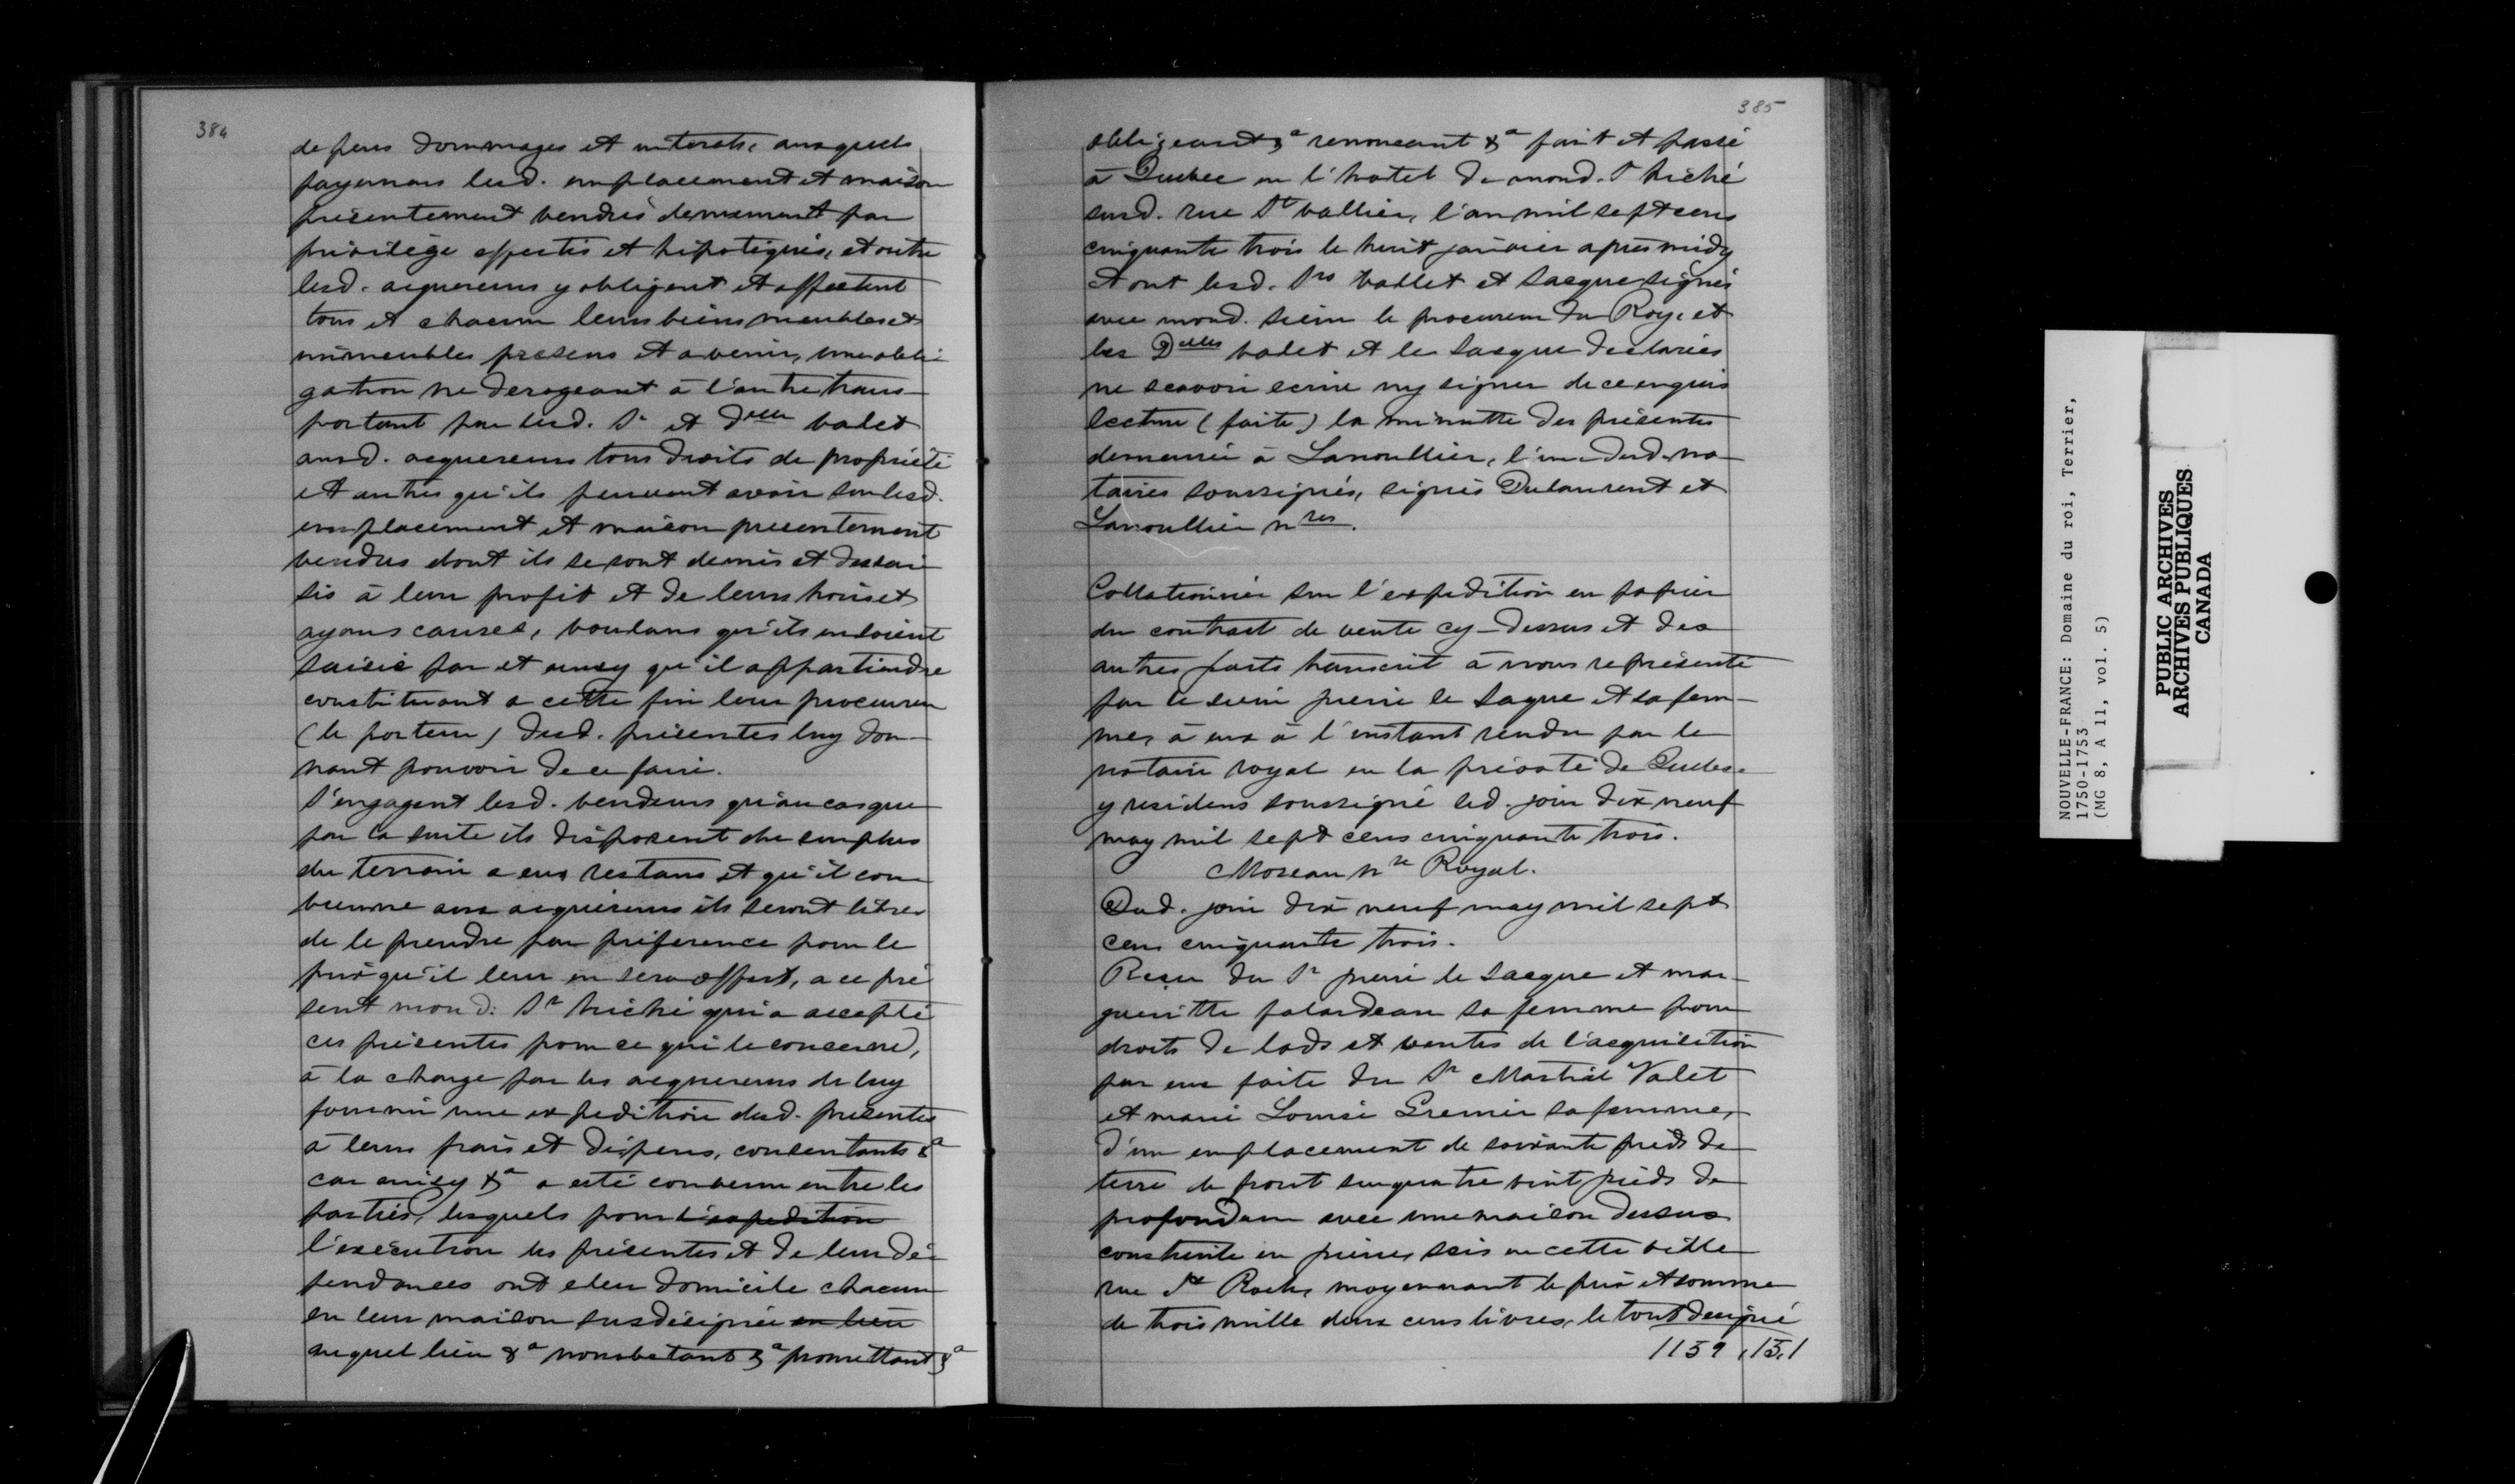 384
depens dommages et interests, auxquels
payemens lesd. emplacement et maison
présentement vendus demeurent par
privilège affectés et hipotéqués, et outre
lesd. acquereurs y obligent et affectent
tous et chacun leurs biens meubles et
immeubles presens et a venir, une obli-
gation ne derogeant à l'autre trans-
portant par lesd. Sr et Delle valet
auxd. acquereurs tous droits de propriété
et autres qu'ils peuvent avoir sur lesd.
emplacement et maison presentement
vendus dont ils se sont demis et dessai-
sis à leur profit et de leurs hoirs et
ayans causes, voulans qu'ils en soient
saisis par et ainsy qu'il appartiendra
constituant a cette fin leur procureur
(le porteur) desd. présentes luy don-
nant pouvoir de ce faire.
S'engagent lesd. vendeurs qu'au cas que
par la suite ils disposent du surplus
du terrain a eux restans et qu'il con-
vienne aux acquéreurs ils seront libres
de le prendre par préference pour le
prix qu'il leur en sera offert, a ce pré-
sent mond. Sr hiché qui a accepté
ces présentes pour ce qui le concerne,
à la charge par les acquereurs de luy
fournir une expedition desd. presentes
à leurs frais et dépens, consentants &a
car ainsy &a a esté convenu entre les
parties, lesquels pour l'expedition
l'exécution les présentes et de leur dé-
pendances ont eleu domicile chacun
en leur maison susdésignée en lieu
auquel lieu &a nonobstant &a promettant &a
385
obligeant &a renonceant &a fait et passé
à Quebec en l'hotel de mond. Sr hiché
susd. rue St vallier, l'an mil sept cens
cinquante trois le huit janvier après midy
et ont lesd. Srs vallet et Lacque signés
avec mond. sieur le procureur du Roy, et
les Delles valet et le Lasque declarées
ne scavoir ecrire ny signer de ce enquis
lecture (faite) la minutte des présentes
demeurée à Lanoullier, l'un desd. no-
taires soussignés, signés Dulaurent et
Lanoullier nres.
Collationnée sur l'expedition en papier
du contract de vente cy-dessus et des
autres parts transcrit à nous representé
par le sieur pierre le Lague et sa fem-
me, à eux à l'instant rendu par le
notaire royal en la prévoté de Quebec
y residens soussigné led. jour dix neuf
may mil sept cens cinquante trois.
Moreau nre Royal.
Dud. jour dix neuf may mil sept
cens cinquante trois.
Reçu du Sr pierre le Lacque et mar-
gueritte falardeau sa femme pour
droits de lods et ventes de l'acquisition
par eux faite du Sr Martial Valet
et marie Louise Grenier sa femme,
d'un emplacement de soixante pieds de
terre de front sur quatre vint pieds de
profondeur avec une maison dessus
construite en pierre, sçis en cette ville
rue St Roch, moyennant le prix et somme
de trois mille deux cens livres, le tout designé
1159,13,1
NOUVELLE-FRANCE: Domaine du roi, Terrier,
1750-1753
(MG 8, A 11, vol. 5)
PUBLIC ARCHIVES
ARCHIVES PUBLIQUES
CANADA